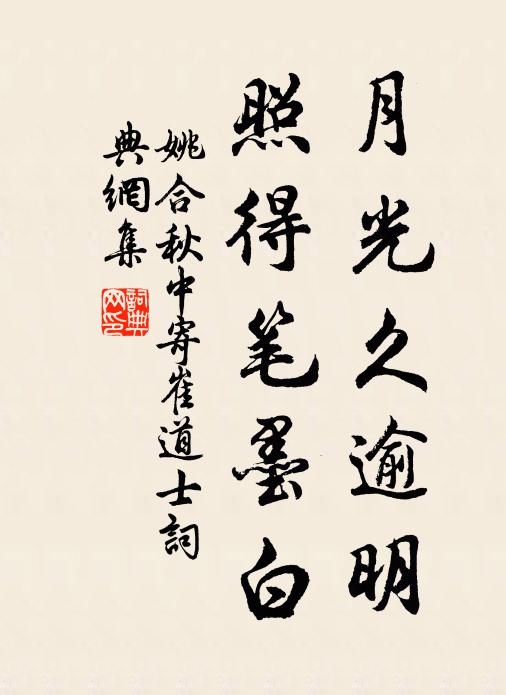 月光久逾明
照得笔墨白
姚合秋中寄崔道士詞
典網集
詞典网印